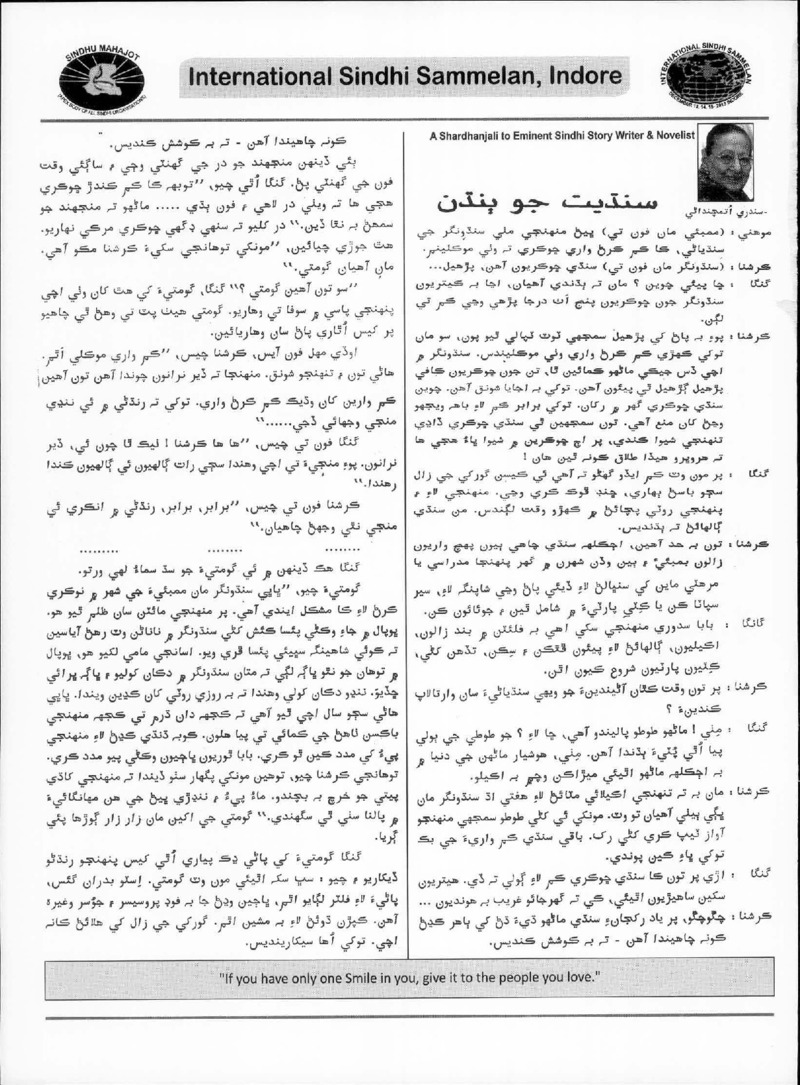 SINDHU MAHAJOT
(APEX BODY OF ALL SINDHI ORGANISATIONS)
International Sindhi Sammelan, Indore
INTERNATIONAL SINDHI SAMMELAN
A Shardhanjali to Eminent Sindhi Story Writer & Novelist
سنڌيت جو ٻنڌن
-سندري اُتمچنداڻي
موهني : (ممبئي مان فون تي) ڀيڻ منهنجي ملي سنڌونگر جي
سنڌياڻي، ڪا ڪم ڪرڻ واري ڇوڪري ته ولي موڪلينم.
ڪرشنا : (سنڌونگر مان فون تي) سنڌي ڇوڪريون آهن، پڙهيل...
گنگا : ڇا پيئي چوين ؟ مان ته ٻڌندي آهيان، اڃا به ڪيتريون
سنڌونگر جون ڇوڪريون پنج اٺ درجا پڙهي وڃي ڪم تي
لڳن.
ڪرشنا : پوءِ به پاڻ کي پڙهيل سمجهي ٽوٽ ٽهالي ٿيو پون، سو مان
توکي ڪهڙي ڪم ڪرڻ واري ولي موڪلينديس. سنڌونگر ۾
اچي ڏس جيڪي ماڻهو ڪمائين ٿا، تن جون ڇوڪريون ڪافي
پڙهيل ڳڙهيل ٿي پيئون آهن. توکي به اجايا شونق آهن. چوين
سنڌي ڇوڪري گهر ۾ رکان. توکي برابر ڪم لاءِ باهه ويجهو
وڃڻ کان منع آهي. تون سمجهين ٿي سنڌي ڇوڪري ڏاڍي
تنهنجي شيوا ڪندي، پر اڄ ڇوڪرين ۾ شيوا ڀاءُ هجي ها
ته هروڀرو هيڏا طلاق ڪونه ٿين هان !
گنگا : پر مون وٽ ڪم ايڏو گهڻو ته آهي ئي ڪيسن گورکي جي زال
سڄو باسڻ ٻهاري، چنڊ ڦوڪ ڪري وڃي. منهنجي لاءِ ۽
پنهنجي روٽي پچائڻ ۾ ڪهڙو وقت لڳندس. من سنڌي
ڳالهائڻ ته ٻڌنديس.
ڪرشنا : تون به حد آهين، اڄڪلهه سنڌي چاهي ٻيون پهچ واريون
زالون بمبئيءَ ۽ ٻين وڏن شهرن ۾ گهر پنهنجا مدراسي يا
مرهٽي ماين کي سنڀالڻ لاءِ ڏيئي پاڻ وڃي شاپنگ لاءِ، سير
سپاٽا ڪن يا ڪِٽي پارٽيءَ ۾ شامل ٿين ۽ جوٿائون ڪن.
گانگا : بابا سڌوري منهنجي سکي اهي به فلئٽن ۾ بند زالون،
اڪيليون، ڳالهائڻ لاءِ پيئون ڦٿڪن ۽ سِڪن، تڏهن ڪٿي،
ڪِٽيون پارٽيون شروع ڪيون اٿن.
ڪرشنا : پر تون وقت ڪٿان آڻيندينءَ جو ويهي سنڌياڻيءَ سان وارتالاپ
ڪندينءَ ؟
گنگا : مِٺي ! ماڻهو طوطو پاليندو آهي، ڇا لاءِ ؟ جو طوطي جي ٻولي
پيا اُٿي ٻُڌيءَ ٻڌندا آهن. مِٺي، هوشيار ماڻهن جي دنيا ۾
به اڄڪلهه ماڻهو اٿيئي ميڙاڪن وچ ۾ به اڪيلو.
ڪرشنا : مان به ته تنهنجي اڪيلائي مٽائڻ لاءِ هفتي اڌ سنڌونگر مان
ڀڳي پيئي آهيان تو وٽ. مونکي ئي ڪٿي طوطو سمجهي منهنجو
آواز ٽيپ ڪري ڪٿي رک. باقي سنڌي ڪم واريءَ جي بک
توکي ڀاءِ ڪين پوندي.
گنگا : اڙي پر تون ڪا سنڌي ڇوڪري ڪم لاءِ ڳولي ته ڏي. هيتريون
سکين ساهيڙيون اٿيئي، ڪي ته گهرجائو غريب به هونديون ...
ڪرشنا : چڱوچڱو، پر ياد رکجانءِ سنڌي ماڻهو ڌيءَ ڌڻ کي ٻاهر ڪڍڻ
ڪونه چاهيندا آهن - ته به ڪوشش ڪنديس.
ڪونه چاهيندا آهن - ته به ڪوشش ڪنديس.
ٻئي ڏينهن منجهند جو در جي گهنٽي وڄي ۽ ساڳئي وقت
فون جي گهنٽي پڻ. گنگا اُٿي چيو، ”توبهه ڪا ڪم ڪندڙ ڇوڪري
هجي ها ته ويلي در لاهي ۽ فون ٻڌي ..... ماڻهو ته منجهند جو
سمهڻ به نٿا ڏين.“ در کليو ته سنهي ڊگهي ڇوڪري مرڪي نهاريو.
هٿ جوڙي چيائين، ”مونکي توهانجي سکيءَ ڪرشنا مڪو آهي.
مان آهيان گومتي.“
”سو تون آهين گومتي ؟“ گنگا، گومتيءَ کي هٿ کان ولي اچي
پنهنجي پاسي ۾ سوفا تي وهاريو. گومتي هيٺ پٽ تي وهڻ ٿي چاهيو
پر ڪيس اُٿاري پاڻ سان وهاريائين.
اوڏي مهل فون آيس، ڪرشنا چيس، ”ڪم واري موڪلي اٿم.
هاڻي تون ۽ تنهنجو شونق. منهنجا ته ڏير نرانون چوندا آهن تون آهين
ڪم وارين کان وڌيڪ ڪم ڪرڻ واري. توکي ته رنڌڻي ۾ ئي ننڍي
منجي وجهائي ڏجي......“
گنگا فون تي چيس، ”ها ها ڪرشنا ! ٺيڪ ٿا چون ئي، ڏير
نرانون. پوءِ منجيءَ تي اچي وهندا سڄي رات ڳالهيون ئي ڳالهيون ڪندا
رهندا.“
ڪرشنا فون تي چيس، ”برابر، برابر، رنڌڻي ۾ انڪري ئي
منجي نٿي وجهڻ چاهيان.“
......... ........ ........
گنگا هڪ ڏينهن ۾ ئي گومتيءَ جو سڌ سماءُ لهي ورتو.
گومتيءَ چيو، ”ڀاڀي سنڌونگر مان ممبئيءَ جي شهر ۾ نوڪري
ڪرڻ لاءِ ڪا مشڪل ايندي آهي. پر منهنجي مائٽن سان ظلم ٿيو هو.
ڀوپال ۾ جاءِ وڪڻي پئسا کڻش ڪٿي سنڌونگر ۾ ناناڻن وٽ رهڻ آياسين
ته ڪوئي شاهينگ سڀيئي پئسا ڦري ويو. اسانجي مامي لکيو هو، ڀوپال
۾ توهان جو نٿو ڀاڳ لڳي ته متان سنڌونگر ۾ دڪان کوليو ۽ ڀاڳ ڀرائي
ڇڏيوَ. ننڍو دڪان کولي وهندا ته به روزي روٽي کان ڪڍبن ويندا. ڀاڀي
هاڻي سڄو سال اچي ٿيو آهي ته ڪجهه دان ڌرم تي ڪجهه منهنجي
باڪسن ٺاهڻ جي ڪمائي تي پيا هلون. ڪوبه ڌنڌي ڪڍڻ لاءِ منهنجي
پيءُ کي مدد ڪين ٿو ڪري. بابا ٿوريون ڀاڄيون وڪڻي پيو مدد ڪري.
توهانجي ڪرشنا چيو، توهين مونکي پگهار سٺو ڏيندا ته منهنجي کاڌي
پيتي جو خرچ به بچندو. ماءُ پيءُ ۽ ننڍڙي ڀيڻ جي هن مهانگائيءَ
۾ پالنا سٺي ٿي سگهندي.“ گومتي جي اکين مان زار زار ڳوڙها پئي
ڳريا.
گنگا گومتيءَ کي پاڻي ڍڪ پياري اُٿي کيس پنهنجو رنڌڻو
ڏيکاريو ۽ چيو : سڀ سک اٿيئي مون وٽ گومتي. اِستو بدران گئس،
پاڻيءَ لاءِ فلٽر لڳايو اٿم، ڀاڄين وڍڻ جا به فوڊ پروسيسر ۽ جوُسر وغيره
آهن. ڪپڙن ڌوئڻ لاءِ به مشين اٿم. گورکي جي زال کي هلائڻ ڪانه
اچي. توکي اُها سيکارينديس.
"If you have only one Smile in you, give it to the people you love."